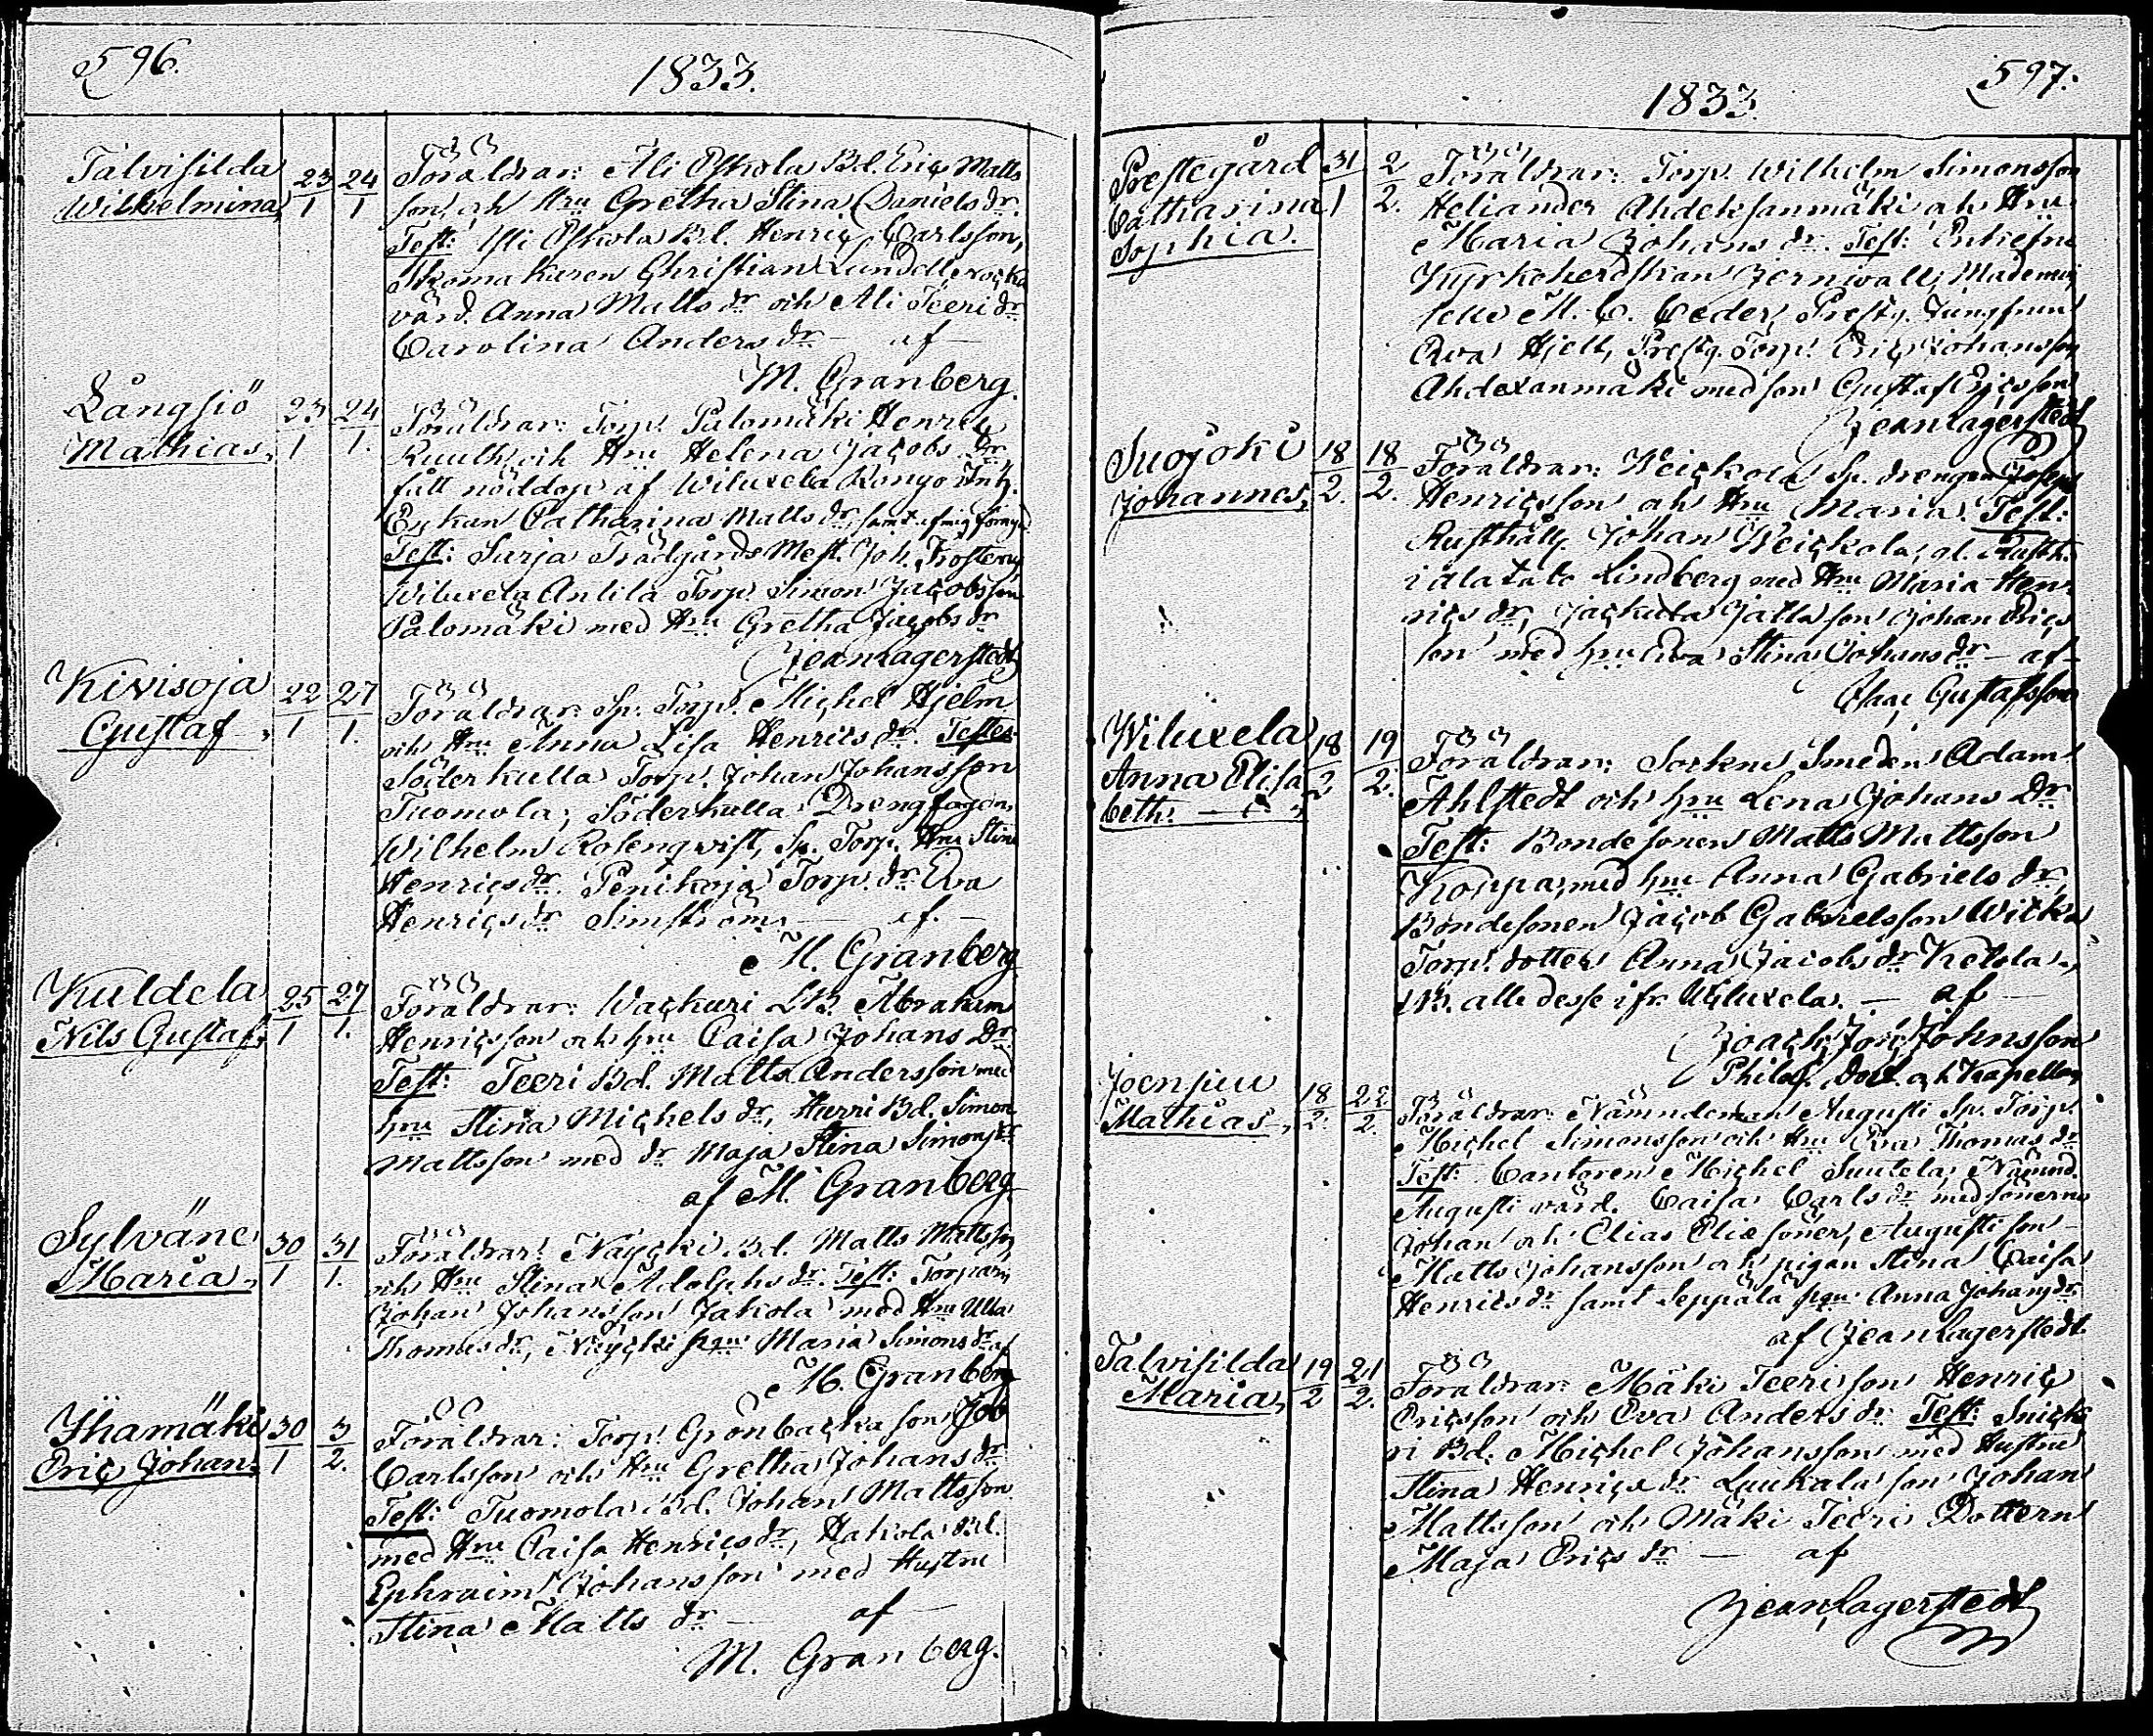 596.
1833.
Talvisilda
Wilhelmina
23/1 24/1
Föräldrar: Ali Oskola Bd. Eric Matts
son, och Hru Gretha Stina Daniels dr.
Test: Yli Oskola Bd. Henric Carlsson,
Skomakaren Christian Lundell,
värd. Anna Matts dr och Ali Teeri dr
Carolina Anders dr - af -
M. Granberg.
Långsiö
Mathias,
23/1 24/1.
Föräldrar: Torp. Palomäki Henric
Ruuth och Hru Helena Jacobs Dr
fått nöddop af Wiluxela Konijo Inh.
Enkan Catharina Matts dr, samt af mig
Test: Sarja Trädgårds Mest. Joh.
Wiluxela Antila Torp. Simon Jacobsson
Palomäki med Hru Gretha Jacobs dr
Jean Lagerstedt
Kivisoja
Gustaf,
22/1 27/1.
Föräldrar: Sp. Torp. Michel Hjelm
och Hru Anna Lisa Henrics dr Testes
Söderkulla Torp. Johan Johansson
Tuomola, Söderkulla Drengfogden
Wilhelm Rosenqwist, Sp. Torp. Hru Stina
Henrics dr. Penikoja Torp. dr Eva
Henrics dr Simström - af. -
M. Granberg
Kuldela
Nils Gustaf,
25/1 27/1.
Föräldrar: Wackuri LB. Abraham
Henricsson och hru Caisa Johans Dr
Test: Teeri Bd. Matts Andersson med
hru Stina Michels dr, Hurri Bd. Simon
Mattsson med dr Maja Stina Simons dr
af M. Granberg
Sylväne
Maria,
30/1 31/1.
Föräldrar: Näycki Bd. Matts Mattsson
och Hru Stina Adolphs dr. Test: Torparn
Johan Johansson Jakola med Hru Ulla
Thomas dr, Näycki pgn Maria Simons dr af
M. Granberg
Yhamäki
Eric Johan,
30/1 3/2.
Föräldrar: Torp. Grönbacka son Job
Carlsson och Hru Gretha Johans dr
Test: Tuomola Bd. Johan Mattsson
med Hru Caisa Henrics dr, Hakola Bd.
Ephraim Johansson med Hustru
Stina Matts dr - af -
M. Granberg.
597.
1833.
Prestegård
Catharina
Sophia.
31/1 2/2.
Föräldrar: Torp. Wilhelm Simonsson
Heliander Ahdeksanmäki och Hru
Maria Johans dr. Test: Enkefru
Kyrkoherdskan Jernwall, Mademoi
selle M. C. Ceder, Prestg. Jungfrun
Eva Hjelt, Prestg. Torp. Eric Johansson
Ahdexanmäki med son Gustaf Ericsson
Jean Lagerstedt
Suojoki
Johannes,
18/2. 18/2.
Föräldrar: Weickola Sp. drengen Joseph
Henricsson och Hru Maria. Test:
Rusthåll. Johan Weickola, gl. Rusth.
Lindberg med Hru Maria Hen
rics dr, Jackula Jalla son Johan Erics
son med hru Eva Stina Johans dr - af -
Isaac Gustafsson
Wiluxela
Anna Elisa
beth.
18/2 19/2.
Föräldrar: Sockne Smeden Adam
Ahlstedt och hru Lena Johans Dr
Test: Bondesonen Matts Mattsson
Koppa, med hru Anna Gabriels dr,
Bondesonen Jacob Gabrielsson Wicka
Torp. dotter Anna Jacobs dr Ketola,
NB. alla desse ifr. Wiluxela. - af -
Joach. Johnsson
Philos. Doct. och Kapellan
Joensuu
Mathias,
18/2. 22/2.
Föräldrar: Nämndeman Augusti Sp. Torp.
Michel Simonsson och Hru Eva Thomas dr
Test: Cantoren Michel Suutela, Nämnd.
Augusti värd. Caisa Carls dr med sönerna
Johan och Elias Elie söner, Augusti son
Matts Johansson och pigan Stina Caisa
Henrics dr samt Seppälä pgn Anna Johans dr
af Jean Lagerstedt.
Talvisilda
Maria,
19/2 24/2.
Föräldrar: Mäki Teeri son Henric
Ericsson och Eva Anders dr Test: Snicka
ri Bd. Michel Johansson med Hustru
Stina Henrics dr Luukala son Johan
Mattsson och Mäki Teeri Dottern
Maja Erics dr - af
Jean Lagerstedt